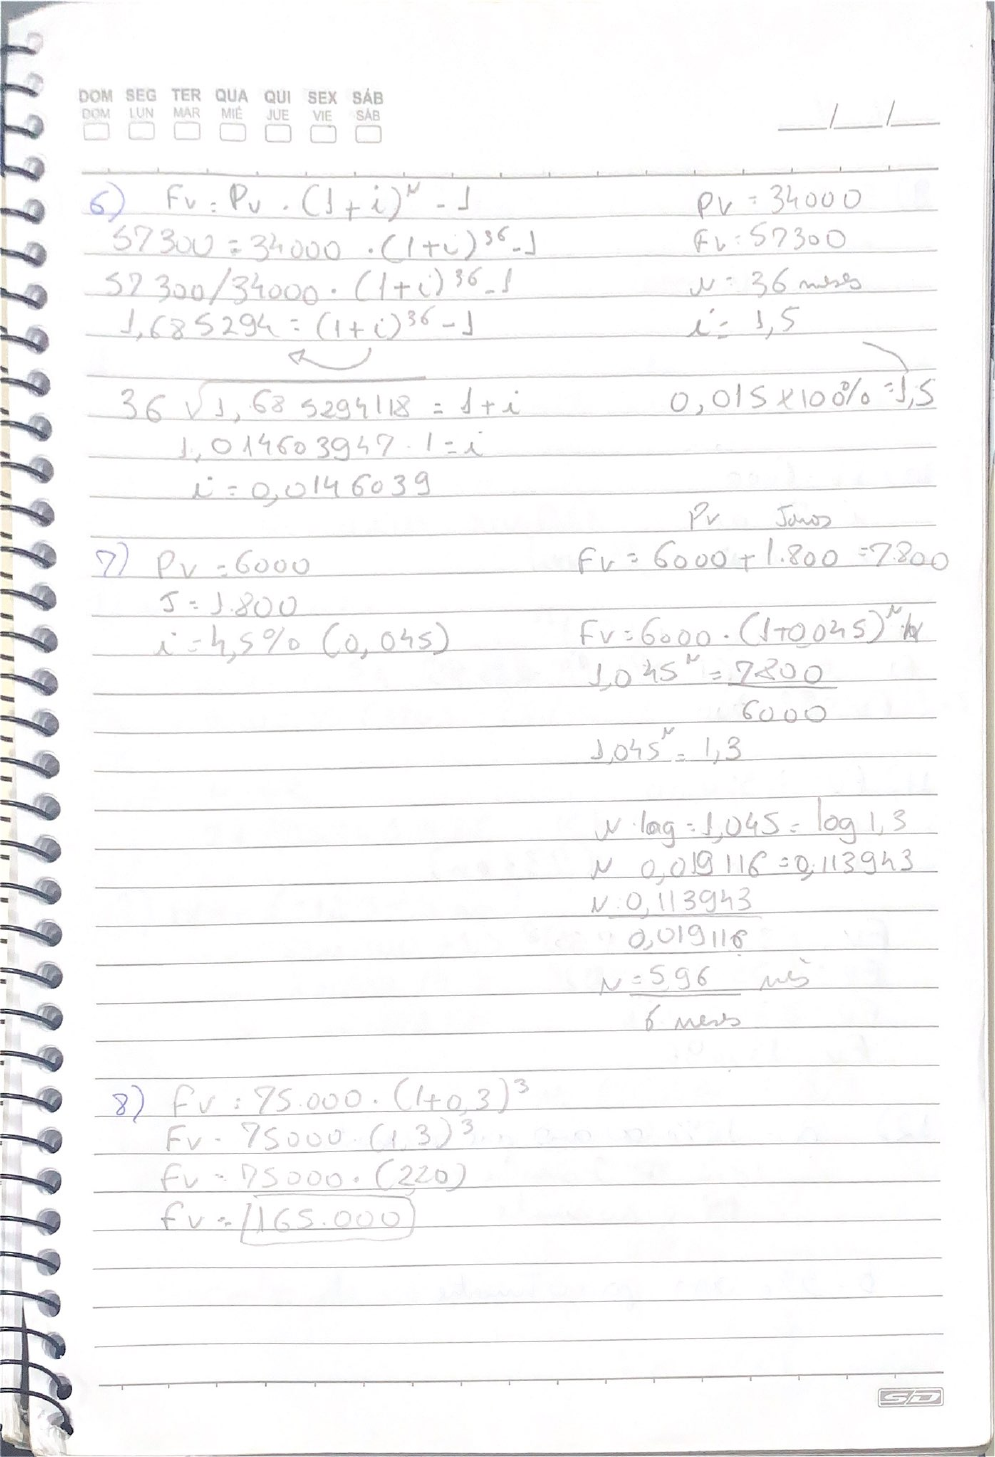 DOM SEG TER QUA QUI SEX SÁB
DOM LUN MAR MIÉ JUE VIE SÁB
__/__/__
6) Fv = Pv . (1+i)ᴺ - 1
57300 = 34000 . (1+i)³⁶ - 1
57300/34000 . (1+i)³⁶ - 1
1,685294 = (1+i)³⁶ - 1
36 √1,685294118 = 1+i
1,014603947 . 1 = i
i = 0,0146039
Pv = 34000
Fv = 57300
N = 36 meses
i = 1,5
0,015 x 100% = 1,5
7) Pv = 6000
J = 1.800
i = 4,5% (0,045)
Pv Juros
Fv = 6000 + 1.800 = 7.800
Fv = 6000 . (1+0,045)ᴺ
1,045ᴺ = 7800
6000
1,045ᴺ = 1,3
N . log = 1,045 = log 1,3
N 0,019116 = 0,113943
N = 0,113943
0,019116
N = 5,96 mês
6 meses
8) Fv = 75.000 . (1+0,3)³
Fv = 75000 . (1,3)³
Fv = 75000 . (2,20)
Fv = 165.000
SD